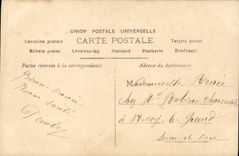 UNION POSTALE UNIVERSELLE
CARTE POSTALE
Cartolina postale Tarjeta postal
Bilhete postal Levelezo-lap Postcard Postkarte Briefkaart
Partie réservée à la correspondance
Adresse du destinataire
Bonne année
Bonne santé
Mademoiselle Renée
Chez Mr
à Noisy le Grand
Seine et Oise